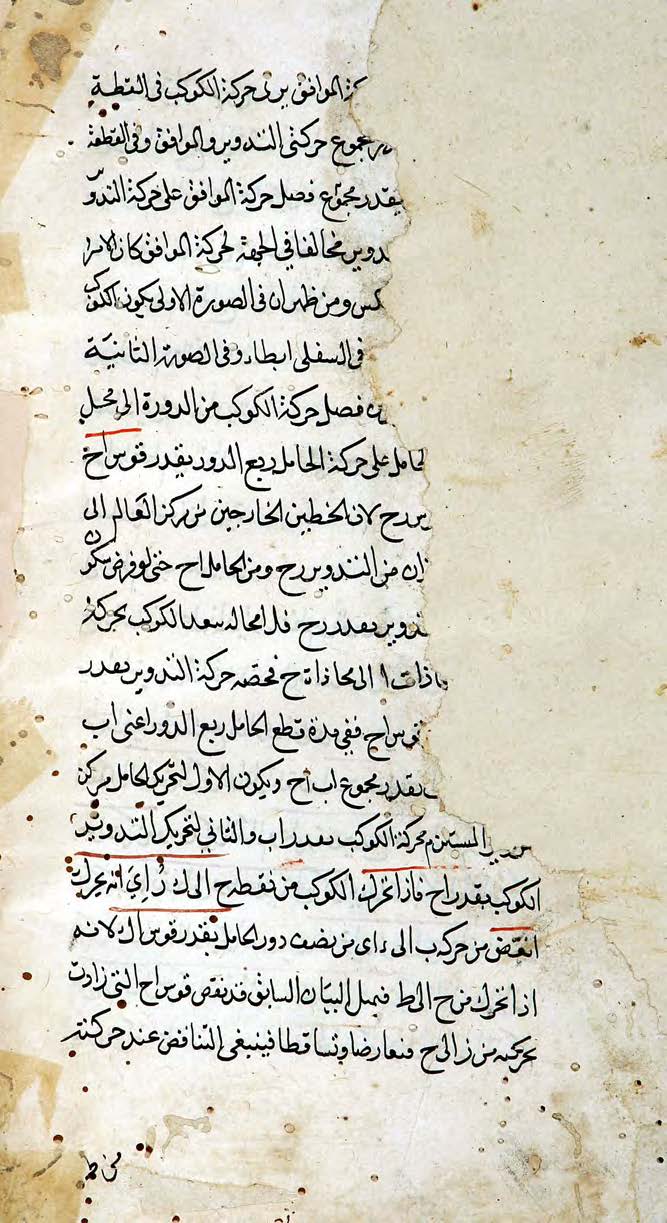 الموافق يرى حركة الكوكب فى القطعة
مجموع حركتى التدوير والموافق وفى القطعة
بقدر مجموع فصل حركة الموافق على حركة التدو
دوير مخالفا فى الجهة لحركة الموافق كان الامر
كس ومن ظهران فى الصورة الاولى يكون الكوكب
فى السفلى ابطاء وفى الصورة الثانية
فصل حركة الكوكب من الدورة الى محل
الحامل على حركة الحامل ربع الدور بقدر قوس اح
رح لان الخطين الخارجين من مركز العالم الى
ان من التدوير رح ومن الحامل اح حتى لو فرض سكون
تدوير بقدر رح فلا محاله بعد الكوكب بحركة
ماذات ا الى محاذاة ح فحصه حركة التدوير بقدر
قوس اح ففى مدة قطع الحامل ربع الدور اعنى اب
بقدر مجموع اب اح ويكون الاول لتحريك الحامل مركز
المستلزم محركة الكوكب بقدر اب والثانى لتحريك التدوير
الكوكب بقدر اح فاذا تحرك الكوكب من نقطة ح الى ك راى انه يحرك
انقص من حركه ب الى ء اى من نصف دور الحامل بقدر قوس اك لانه
اذا تحرك من ح الى ط فبمثل البيان السابق قد نقص قوس اح التى زادت
بحركته من ز الى ح فتعارضا وتساقطا فينبغى التناقض عند حركته
من ط